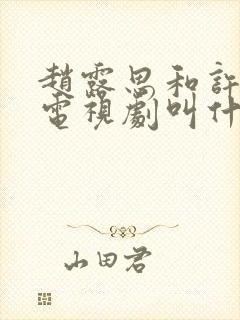 趙露思和許
電視劇叫什
山田君